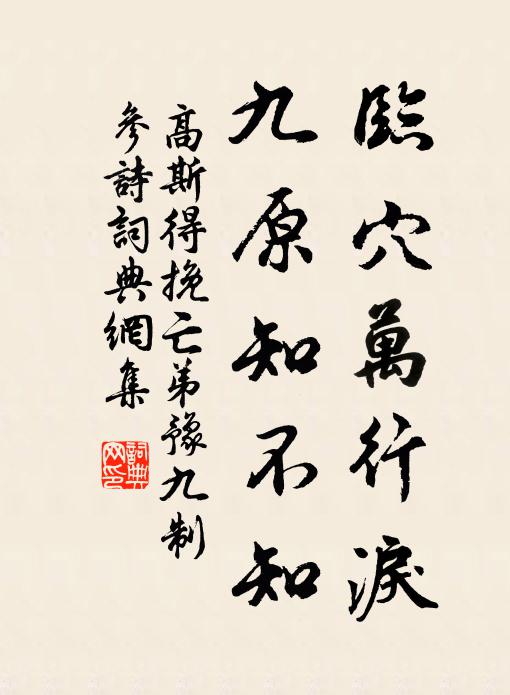 臨穴萬行淚
九原知不知
高斯得挽亡弟豫九制
參詩詞典網集
詞典網印